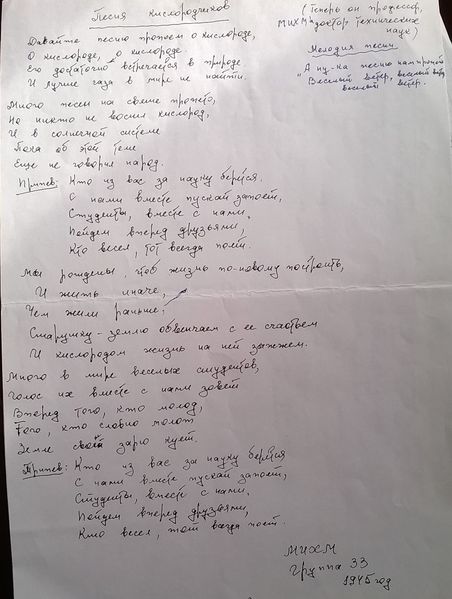 Песня кислородчиков
(Теперь он профессор,
МИХМ доктор технических
наук)
Мелодия песни
"А ну-ка песню нам пропой
Веселый ветер, веселый ветер,
веселый ветер.
Давайте песню пропоем о кислороде,
О кислороде, о кислороде.
Его достаточно встречается в природе
И лучше газа в мире не найти.
Много песен на свете пропето,
Но никто не воспел кислород,
И в солнечной системе
Пока об этой теме
Еще не говорил народ.
Припев: Кто из вас за науку берется.
С нами вместе пускай запоет,
Студенты, вместе с нами,
Пойдем вперед друзьями,
Кто весел, тот всегда поет.
Мы рождены, чтоб жизнь по-новому построить,
И жить иначе,
Чем жили раньше,
Старушку-землю обвенчаем с ее счастьем
И кислородом жизнь на ней зажжем.
Много в мире веселых студентов,
Голос их вместе с нами зовет
Вперед того, кто молод,
Того, кто словно молот
Земле свою зарю кует.
Припев: Кто из вас за науку берется
С нами вместе пускай запоет,
Студенты, вместе с нами,
Пойдем вперед друзьями,
Кто весел, тот всегда поет.
МИХМ
Группа 33
1945 год